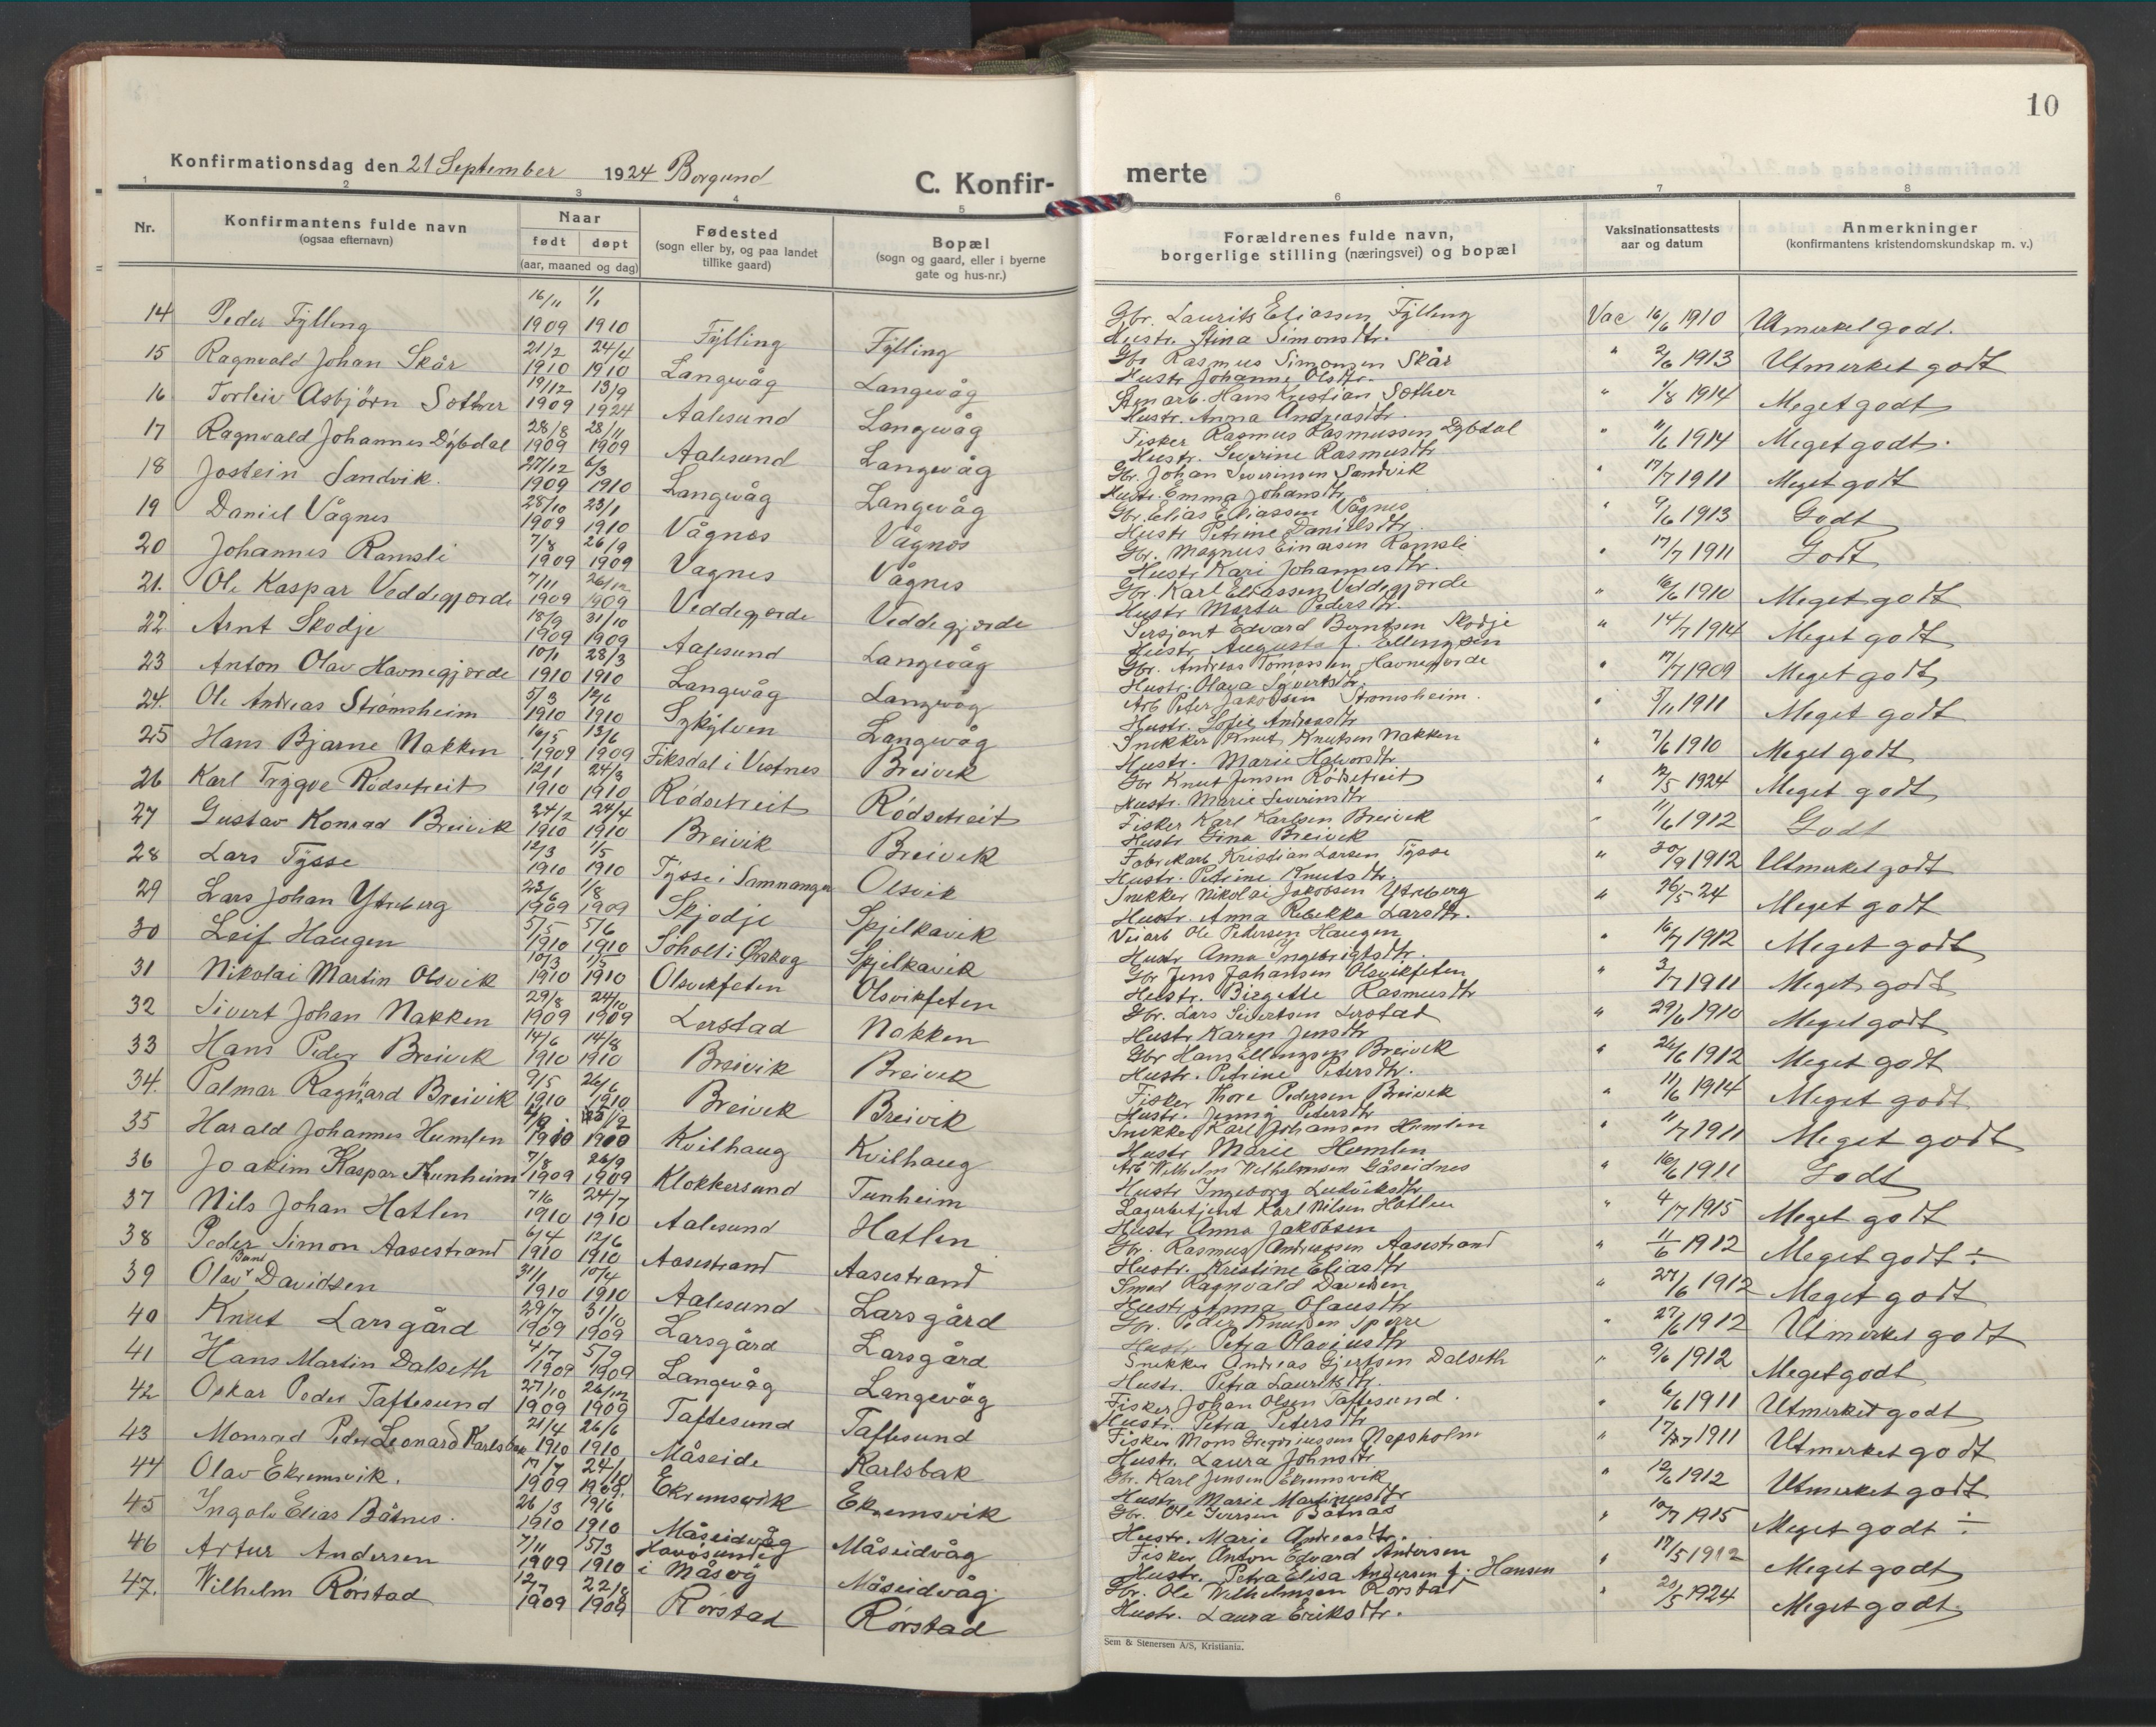 10
Konfirmationsdag den 21 September 1924 Borgund
C. Konfir-
merte
1 2 3 4 5 6 7 8
Nr.
Konfirmantens fulde navn
(ogsaa efternavn)
Naar
født døpt
(aar, maaned og dag)
Fødested
(sogn eller by, og paa landet
tillike gaard)
Bopæl
(sogn og gaard, eller i byerne
gate og hus-nr.)
Forældrenes fulde navn,
borgerlige stilling (næringsvei) og bopæl
Vaksinationsattests
aar og datum
Anmerkninger
(konfirmantens kristendomskundskap m. v.)
14 Peder Fylling 16/11 1909 1/1 1910 Fylling Fylling Gbr. Laurits Eliassen Fylling Vac 16/6 1910 Utmerket godt.
Hustr. Stina Simonsdtr.
15 Ragnvald Johan Skår 21/2 1910 24/4 1910 Langevåg Langevåg Gbr Rasmus Simonsen Skår " 2/6 1913 Utmerket godt
Hustr Johanne Olsdtr.
16 Torleiv Asbjörn Sother 19/12 1909 13/9 1924 Aalesund Langevåg arb. Hans Kristian Sother " 1/8 1914 Meget godt
Hustr. Anna Andreasdtr.
17 Ragnvald Johannes Dybdal 28/8 1909 28/11 1909 Aalesund Langevåg Fisker Rasmus Rasmussen Dybdal " 11/6 1914 Meget godt.
Hustr. Severine Rasmusdtr
18 Jostein Sandvik. 27/12 1909 6/3 1910 Langevåg Langevåg Gbr. Johan Severinsen Sandvik " 17/7 1911 Meget godt
Hustr. Emma Johansdtr.
19 Daniel Vågnes 28/10 1909 23/1 1910 Vågnes Vågnes Gbr. Elias Eliassen Vågnes " 9/6 1913 Godt
Hustr Petrine Danielsdtr.
20 Johannes Ramsli 7/8 1909 26/9 1909 Vagnes Vågnes Gbr. Magnus Einarsen Ramsli " 17/7 1911 Godt
Hustr Kari Johannesdtr.
21. Ole Kaspar Veddegjerde 7/11 1909 26/12 1909 Veddegjerde Veddegjerde Gbr. Karl Eliassen Veddegjerde " 16/6 1910 Meget godt
Hustr Marta Pedersdtr.
22 Arnt Skodje 18/9 1909 31/10 1909 Aalesund Langevåg Sersjant Edvard Berntsen Skodje " 14/7 1914 Meget godt
Hustr Augusta f. Ellingsen
23 Anton Olav Havnegjerde 10/1 1910 28/3 1910 Langevåg Langevåg Gbr. Andreas Tomassen Havnegjerde " 17/7 1909 Meget godt
Hustr. Olava Sivertsdtr.
24. Ole Andreas Strömsheim 5/3 1910 12/6 1910 Sykylven Langevåg Arb Peter Jakobsen Stromsheim. " 3/11 1911 Meget godt
Hustr. Sofie Andreasdtr
25 Hans Bjarne Nakken 16/5 1909 13/6 1909 Fiksdal i Vestnes Breivik Snekker Knut Knutsen Nakken " 7/6 1910 Meget godt
Hustr. Marie Halvorsdtr
26 Karl Trygve Rödsetreit 12/1 1910 24/3 1910 Rödsetreit Rödsetreit Gbr Knut Jensen Rödsetreit " 12/5 1924 Meget godt
Hustr. Marie Severinsdtr
27 Gustav Konrad Breivik 24/2 1910 24/4 1910 Breivik Breivik Fisker Karl Karlsen Breivik " 11/6 1912 Godt
Hustr Gina Breivik
28 Lars Tysse 12/3 1910 1/5 1910 Tysse i Samnanger Olsvik Fabrikarb Kristian Larsen Tysse " 30/9 1912 Utmerket godt
Hustr. Petrine Knutsdtr.
29 Lars Johan Ytreberg 23/6 1909 1/8 1909 Skjodje Spjelkavik Snekker Nikolai Jakobsen Ytreberg " 26/5 24 Meget godt
Hustr. Anna Rebekka Larsdtr.
30 Leif Haugen 5/5 1910 5/6 1910 Söholt i Ørskog Spjelkavik Veiarb Ole Pedersen Haugen " 16/7 1912 Meget godt
Hustr Anna Ingebrigtsdtr.
31 Nikolai Martin Olsvik 10/3 1910 1/5 1910 Olsvikfeten Olsvikfeten Gbr Jens Johansen Olsvikfeten " 3/7 1911 Meget godt
Hustr. Birgitte Rasmusdtr
32 Sivert Johan Nakken 29/8 1909 24/10 1909 Lerstad Nakken Gbr. Lars Sivertsen Lerstad " 29/6 1910 Meget godt
Hustr Karen Jensdtr
33 Hans Peder Breivik 14/6 1910 14/8 1910 Breivik Breivik Gbr Hans Ellingsen Breivik " 26/6 1912 Meget godt
Hustr. Petrine Petersdtr.
34. Palmar Ragnard Breivik 9/5 1910 26/6 1910 Breivik Breivik Fisker Thore Pedersen Breivik " 11/6 1914 Meget godt
Hustr. Jenny Petersdtr
35 Harald Johannes Humlen Kvilhaug Kvilhaug Snekker Karl Johansen Humlen " 11/7 1911 Meget godt
Hustr Marie Humlen
36 Joakim Kaspar Tunheim 7/8 1909 26/9 1909 Klokkersund Tunheim Arb Wilhelm Wilhelmsen Gåseidnes " 16/6 1911 Godt
Hustr Ingeborg Ludviksdtr
37 Nils Johan Hatlen 7/6 1910 24/7 1910 Aalesund Hatlen Lagerbetjent Karl Nilsen Hatlen " 4/7 1915 Meget godt
Hustr Anna Jakobsen
38 Peder Simon Aasestrand 6/4 1910 12/6 1910 Aasestrand Aasestrand Gbr. Rasmus Andreassen Aasestrand " 11/6 1912 Meget godt ÷
Hustr. Kristine Eliasdtr
39 Olav Davidsen 31/1 1910 10/4 1910 Aalesund Larsgård Smed Ragnvald Davidsen " 27/6 1912 Meget godt
Hustr Anna Olausdtr
40 Knut Larsgård 29/7 1909 31/10 1909 Larsgård Larsgård Gbr. Peder Knutsen Sperre " 27/6 1912 Utmerket godt
Hustr Petra Olaviusdtr
41 Hans Martin Dalseth 4/7 1909 5/9 1909 Langevåg Langevåg Snekker Andreas Gjertsen Dalseth " 9/6 1912 Meget godt
Hustr. Petra Lauritsdtr.
42 Oskar Peder Taftesund 27/10 1909 26/12 1909 Taftesund Taftesund Fisker Johan Olsen Taftesund. " 6/6 1911 Utmerket godt
Hustr. Petra Petersdtr
43 Monrad Peder Leonard Karlsbak 21/4 1910 26/6 1910 Måseide Karlsbak Fisker Mons Gregoriussen Nepsholm " 1911 Utmerket godt
Hustr. Laura Johnsdtr
44 Olav Ekremsvik. 17/7 1909 24/10 1909. Ekremsvik Ekremsvik Gbr. Karl Jensen Ekremsvik " 12/6 1912 Utmerket godt
Hustr. Marie Martinusdtr
45 Ingolv Elias Båtnes. 26/3 1910 19/6 1910 Måseidvåg Måseidvåg Gbr. Ole Iversen Båtnes " 10/7 1915 Meget godt ÷
Hustr. Marie Andreasdtr.
46 Artur Andersen 7/11 1909 15/3 1910 Havösund i Måsöy Måseidvåg. Fisker Anton Edvard Andersen " 17/5 1912 Meget godt
Hustr. Petra Elisa Andersen f. Hansen
47. Wilhelm Rörstad 12/7 1909 22/8 1909 Rörstad Rörstad Gbr. Ole Wilhelmsen Rörstad " 20/5 1924 Meget godt.
Hustr. Laura Eriksdtr.
Sem & Stenersen A/S, Kristiania.